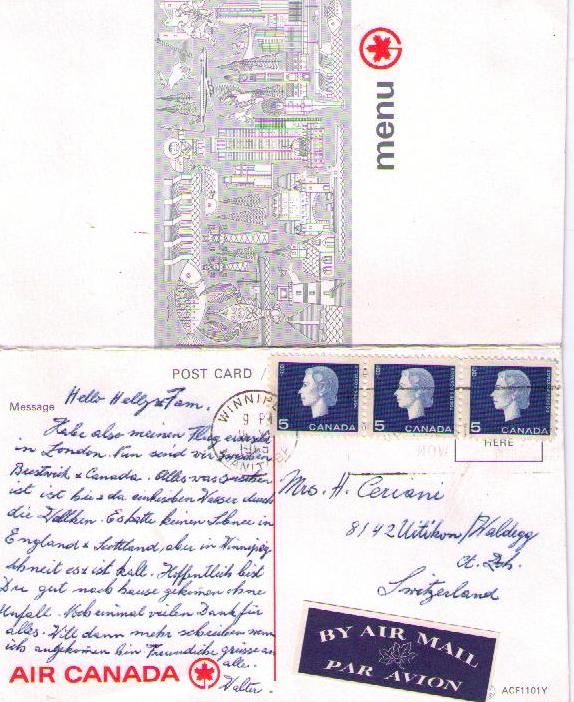 menu
POST CARD
Message
Hello Helly & Fam.
Habe also meinen Flug erreicht
in London. Nun seid wir zwischen
& Canada. Alles was zwischen
ist ist hie & da ein bischen Wasser durch
die Wolken. Es hatte keinen Schnee in
England & Scottland, aber in Winnipeg
schneit es & ist kalt. Hoffentlich bist
Du gut nach hause gekomen ohne
Unfall. Noch einmal vielen Dank für
alles. Will dann mehr schreiben wenn
ich angekomen bin. Freundliche grüsse an
alle.
Walter.
WINNIPEG
9 PM
MANITOBA
5 CANADA
5 CANADA
5 CANADA
HERE
Mrs. H. Ceriani
8142 Uitikon/Waldegg
Ct. Zch.
Switzerland
BY AIR MAIL
PAR AVION
AIR CANADA
ACF1101Y